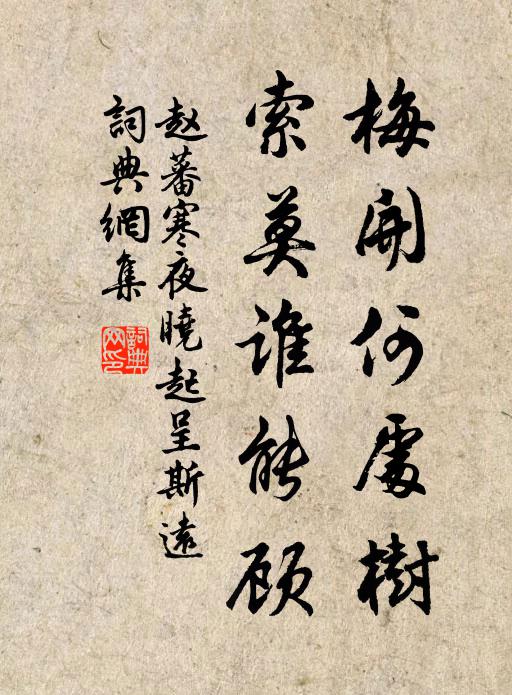 梅開何處樹
索莫誰能顾
赵蕃寒夜曉起呈斯遠
詞典網集
詞典网印